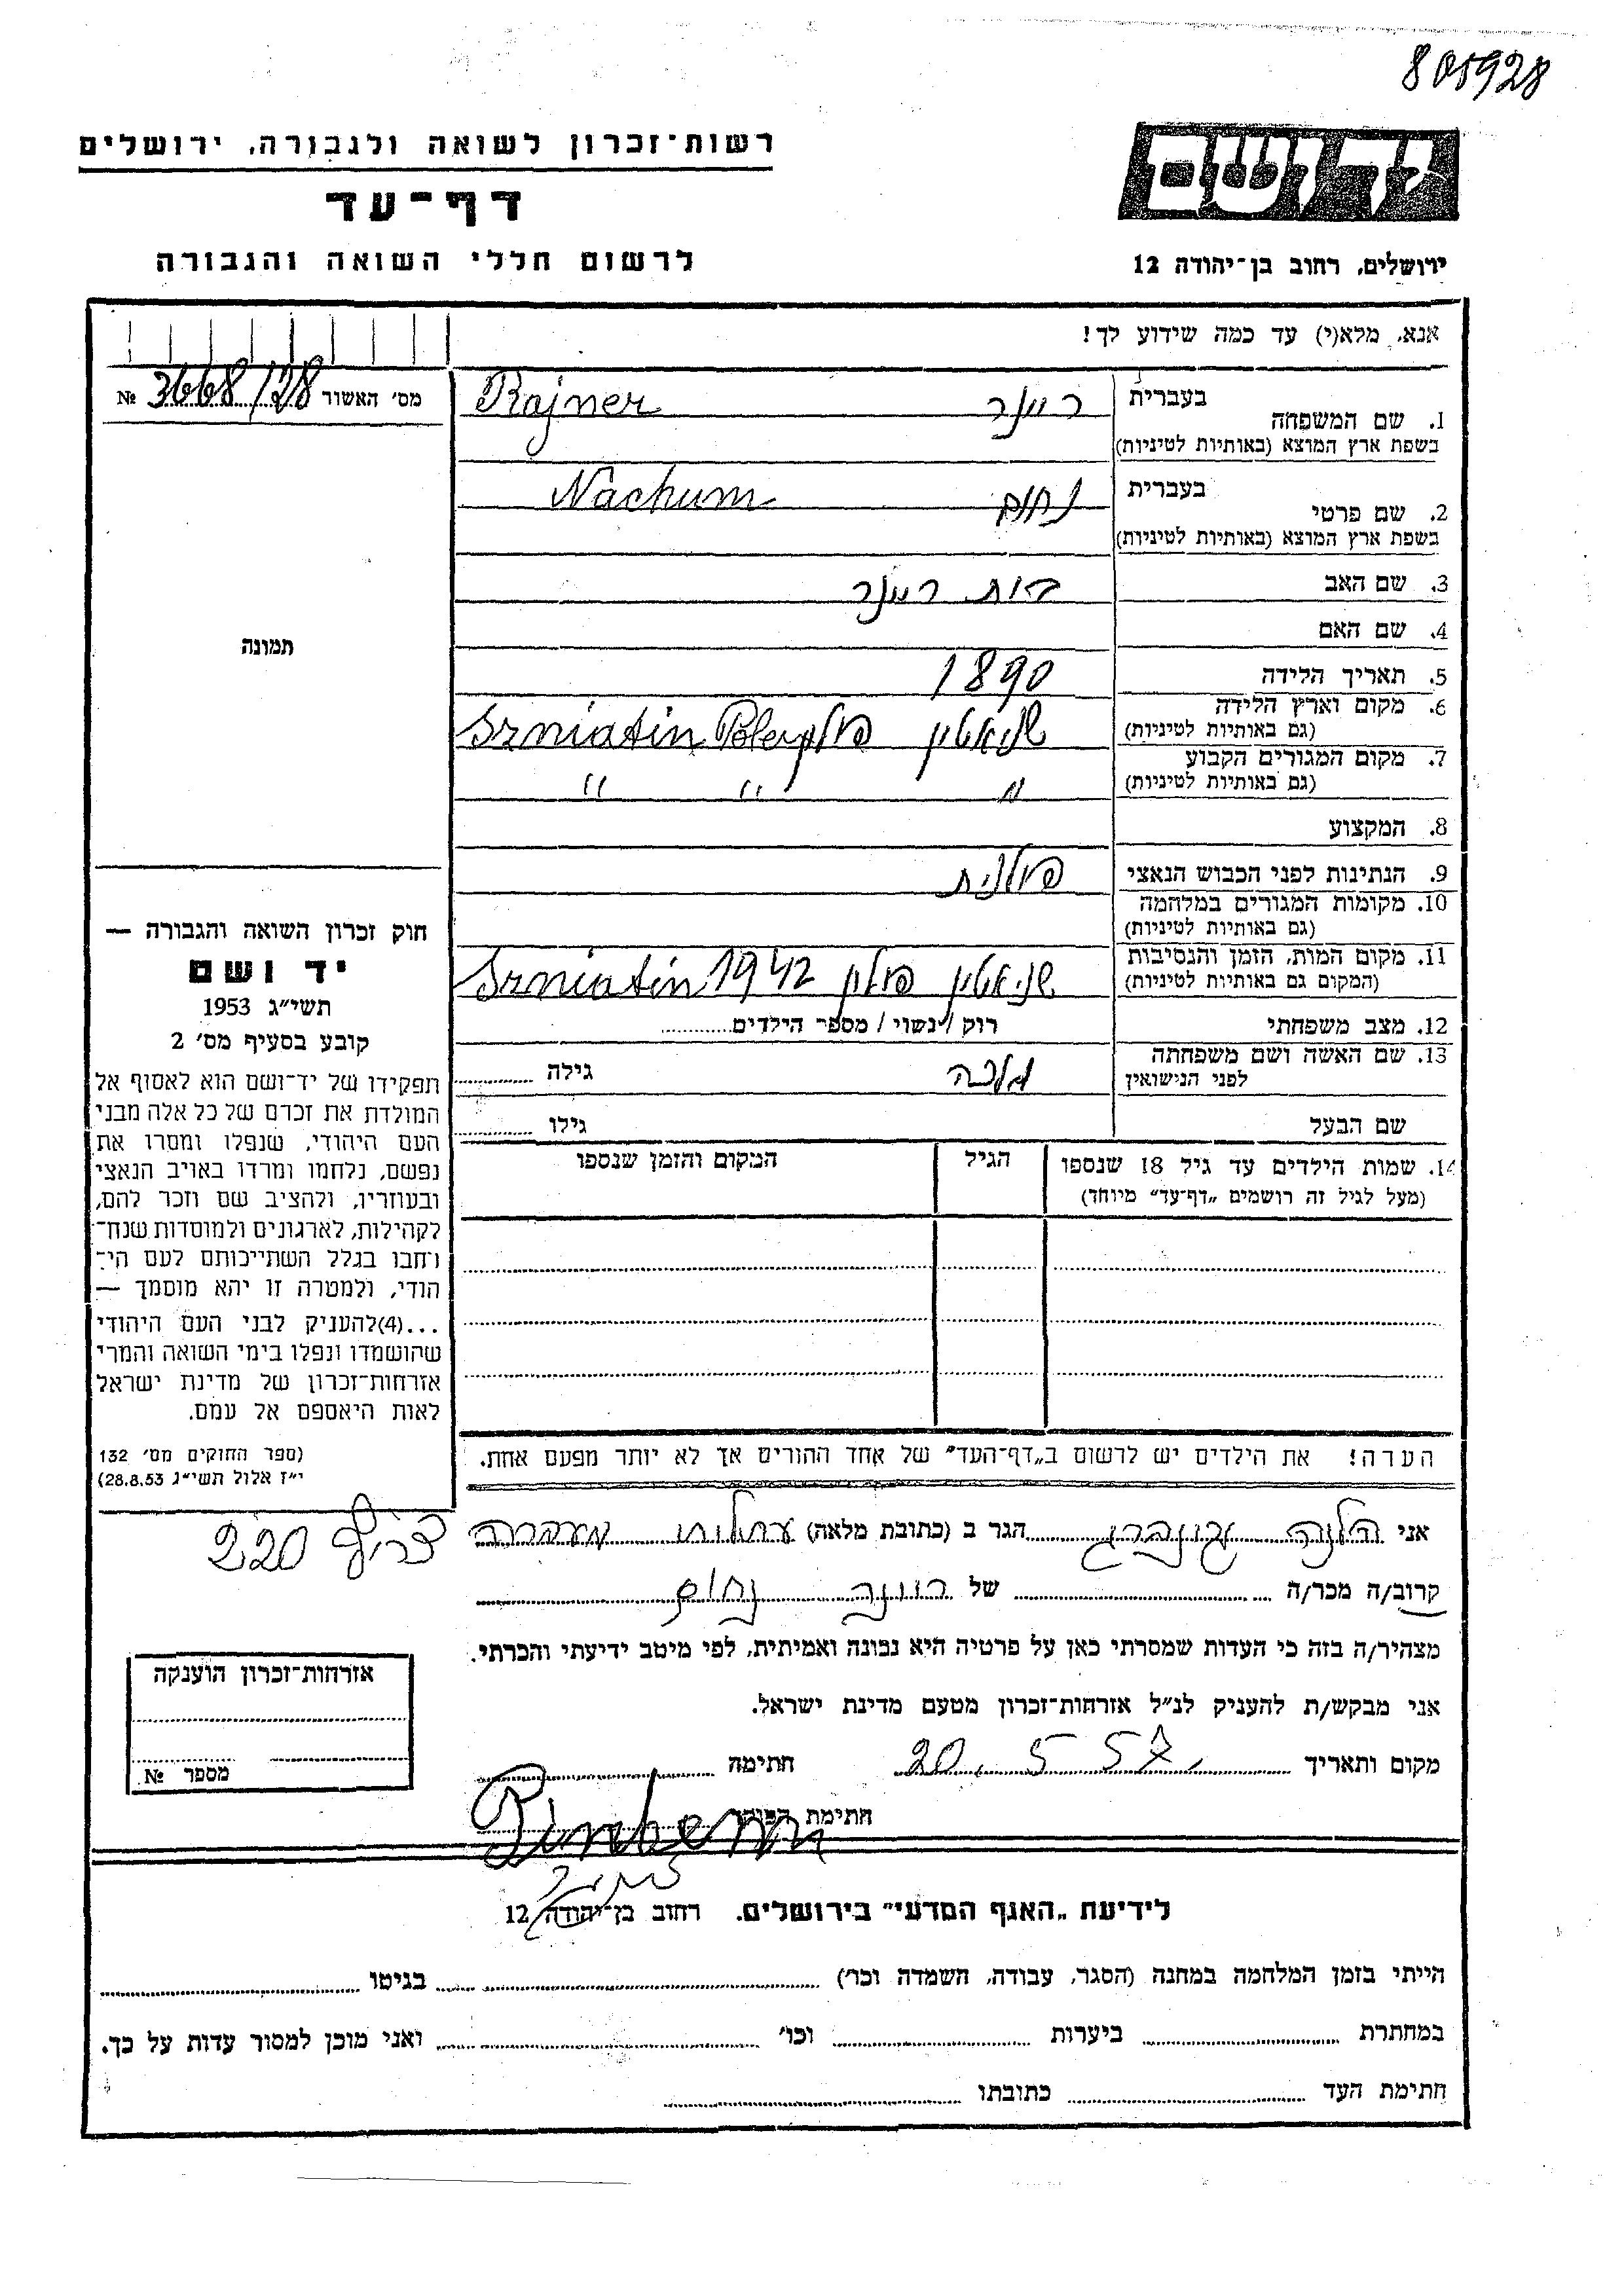 805928
יד ושם
רשות־זכרון לשואה ולגבורה, ירושלים
דף־עד
לרשום חללי השואה והגבורה
ירושלים, רחוב בן־יהודה 12
אנא, מלא(י) עד כמה שידוע לך!
מס׳ האשור 3668/128 №
בעברית
1. שם המשפחה
בשפת ארץ המוצא (באותיות לטיניות)
ריינר Rajner
בעברית
2. שם פרטי
בשפת ארץ המוצא (באותיות לטיניות)
נחום Nachum
3. שם האב
ריינר
4. שם האם
5. תאריך הלידה 1890
6. מקום וארץ הלידה
(גם באותיות לטיניות)
שניאטין פולין Szniatin
7. מקום המגורים הקבוע
(גם באותיות לטיניות)
״ ״ ״
8. המקצוע
9. הנתינות לפני הכבוש הנאצי פולנית
10. מקומות המגורים במלחמה
(גם באותיות לטיניות)
11. מקום המות, הזמן והנסיבות
(המקום גם באותיות לטיניות)
שניאטין פולין 1942 Szniatin
12. מצב משפחתי רוק / נשוי / מספר הילדים
13. שם האשה ושם משפחתה
לפני הנישואין
מלכה גילה
שם הבעל גילו
14. שמות הילדים עד גיל 18 שנספו
(מעל לגיל זה רושמים „דף־עד״ מיוחד)
הגיל
המקום והזמן שנספו
הערה! את הילדים יש לרשום ב„דף־העד״ של אחד ההורים אך לא יותר מפעם אחת.
תמונה
חוק זכרון השואה והגבורה —
יד ושם
תשי״ג 1953
קובע בסעיף מס׳ 2
תפקידו של יד־ושם הוא לאסוף אל
המולדת את זכרם של כל אלה מבני
העם היהודי, שנפלו ומסרו את
נפשם, נלחמו ומרדו באויב הנאצי
ובעוזריו, ולהציב שם וזכר להם,
לקהילות, לארגונים ולמוסדות שנח־
רחבו בגלל השתייכותם לעם הי־
הודי, ולמטרה זו יהא מוסמך —
...(4)להעניק לבני העם היהודי
שהושמדו ונפלו בימי השואה והמרי
אזרחות־זכרון של מדינת ישראל
לאות היאספם אל עמם.
(ספר החוקים מס׳ 132
י״ז אלול תשי״ג 28.8.53)
אני הלנה הגר ב (כתובת מלאה) עתלית מעברה
צריף 220
קרוב/ה מכר/ה של ריינר נחום
מצהיר/ה בזה כי העדות שמסרתי כאן על פרטיה היא נכונה ואמיתית, לפי מיטב ידיעתי והכרתי.
אני מבקש/ת להעניק לנ״ל אזרחות־זכרון מטעם מדינת ישראל.
מקום ותאריך 20. 5 57 חתימה
חתימת
אזרחות־זכרון הוענקה
מספר №
לידיעת „האגף המדעי״ בירושלים, רחוב בן־יהודה 12
הייתי בזמן המלחמה במחנה (הסגר, עבודה, השמדה וכו׳) בגיטו
במחתרת ביערות וכו׳ ואני מוכן למסור עדות על כך.
חתימת העד כתובתו